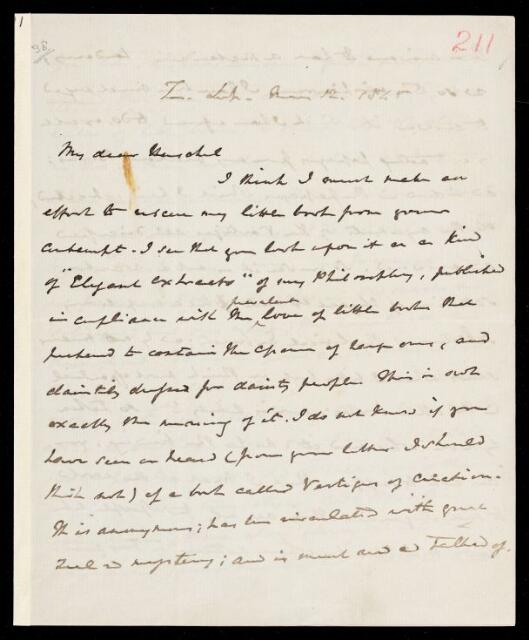 211
Tr. Lodge. Mar. 12. 1845
My dear Herschel
I think I must make an
effort to rescue my little book from your
contempt. I see that you look upon it as a kind
of "Elegant Extracts" of my Philosophy, published
in compliance with the prevalent love of little books that
pretend to contain the cream of large ones, and
daintily dressed for dainty people. This is not
exactly the meaning of it. I do not know if you
have seen or heard (from your letter I should
think not) of a book called Vestiges of Creation.
It is anonymous; has been circulated with great
zeal & mystery; and is much read & talked of.